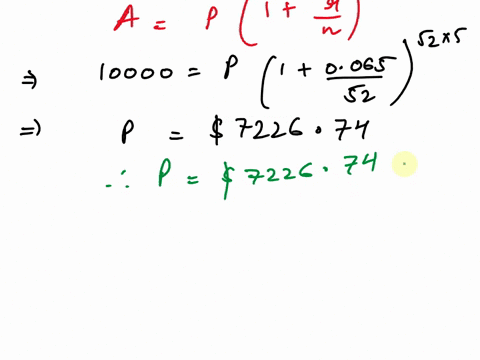 A = P ( 1 + r/n )
⇒ 10000 = P ( 1 + 0.065/52 )^52×5
⇒ P = $ 7226.74
∴ P = $ 7226.74